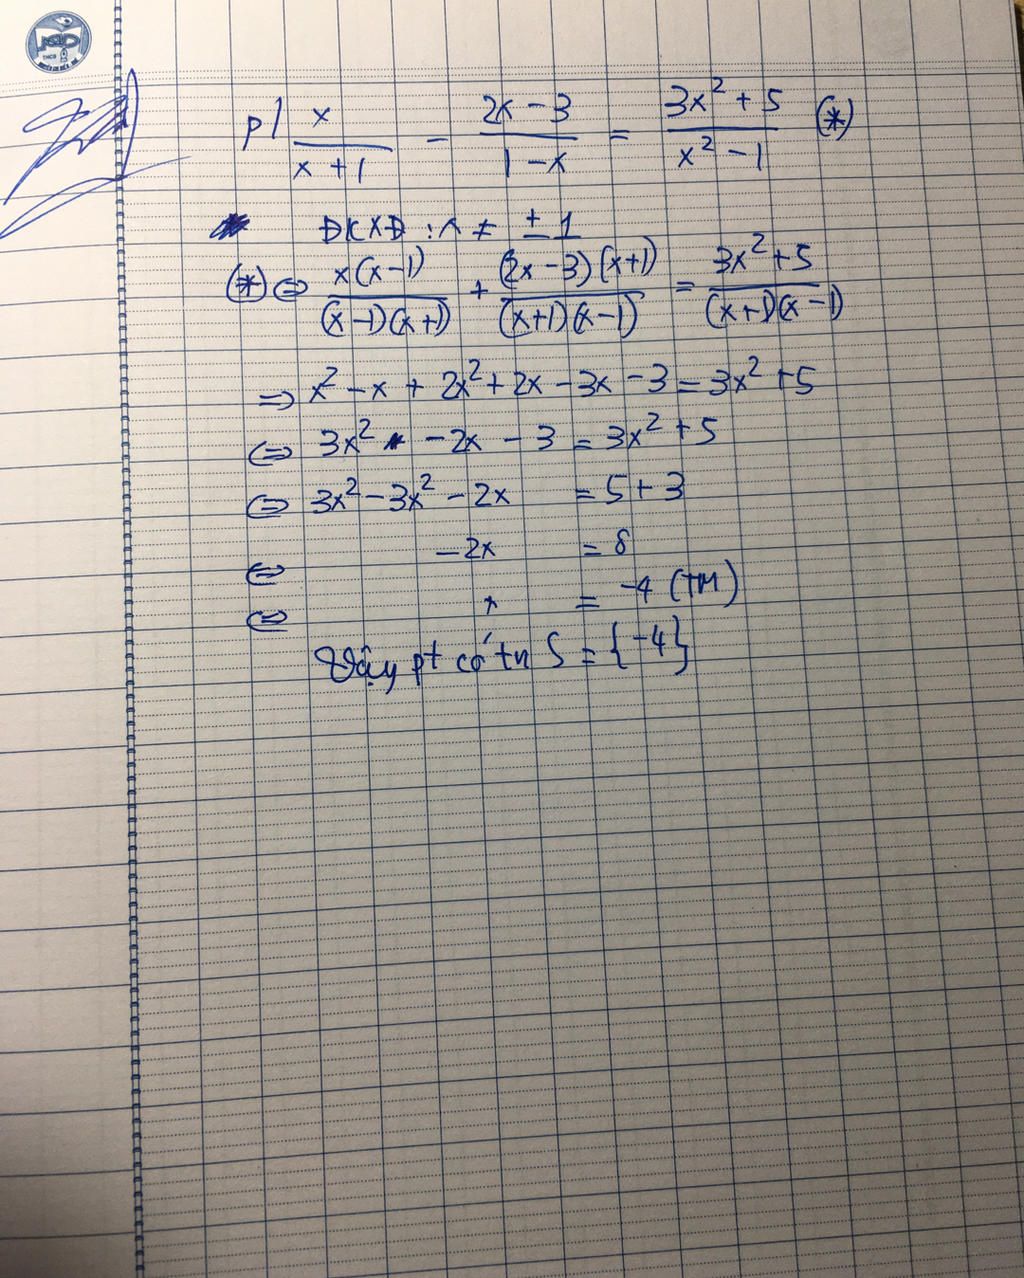 THCS
p/ x/(x + 1) - (2x - 3)/(1 - x) = (3x² + 5)/(x² - 1) (*)
ĐKXĐ : x ≠ ± 1
(*) ⇔ x(x - 1)/((x - 1)(x + 1)) + (2x - 3)(x + 1)/((x + 1)(x - 1)) = (3x² + 5)/((x + 1)(x - 1))
⇒ x² - x + 2x² + 2x - 3x - 3 = 3x² + 5
⇔ 3x² - 2x - 3 = 3x² + 5
⇔ 3x² - 3x² - 2x = 5 + 3
⇔ -2x = 8
⇔ x = -4 (TM)
Vậy pt có tn S = {-4}